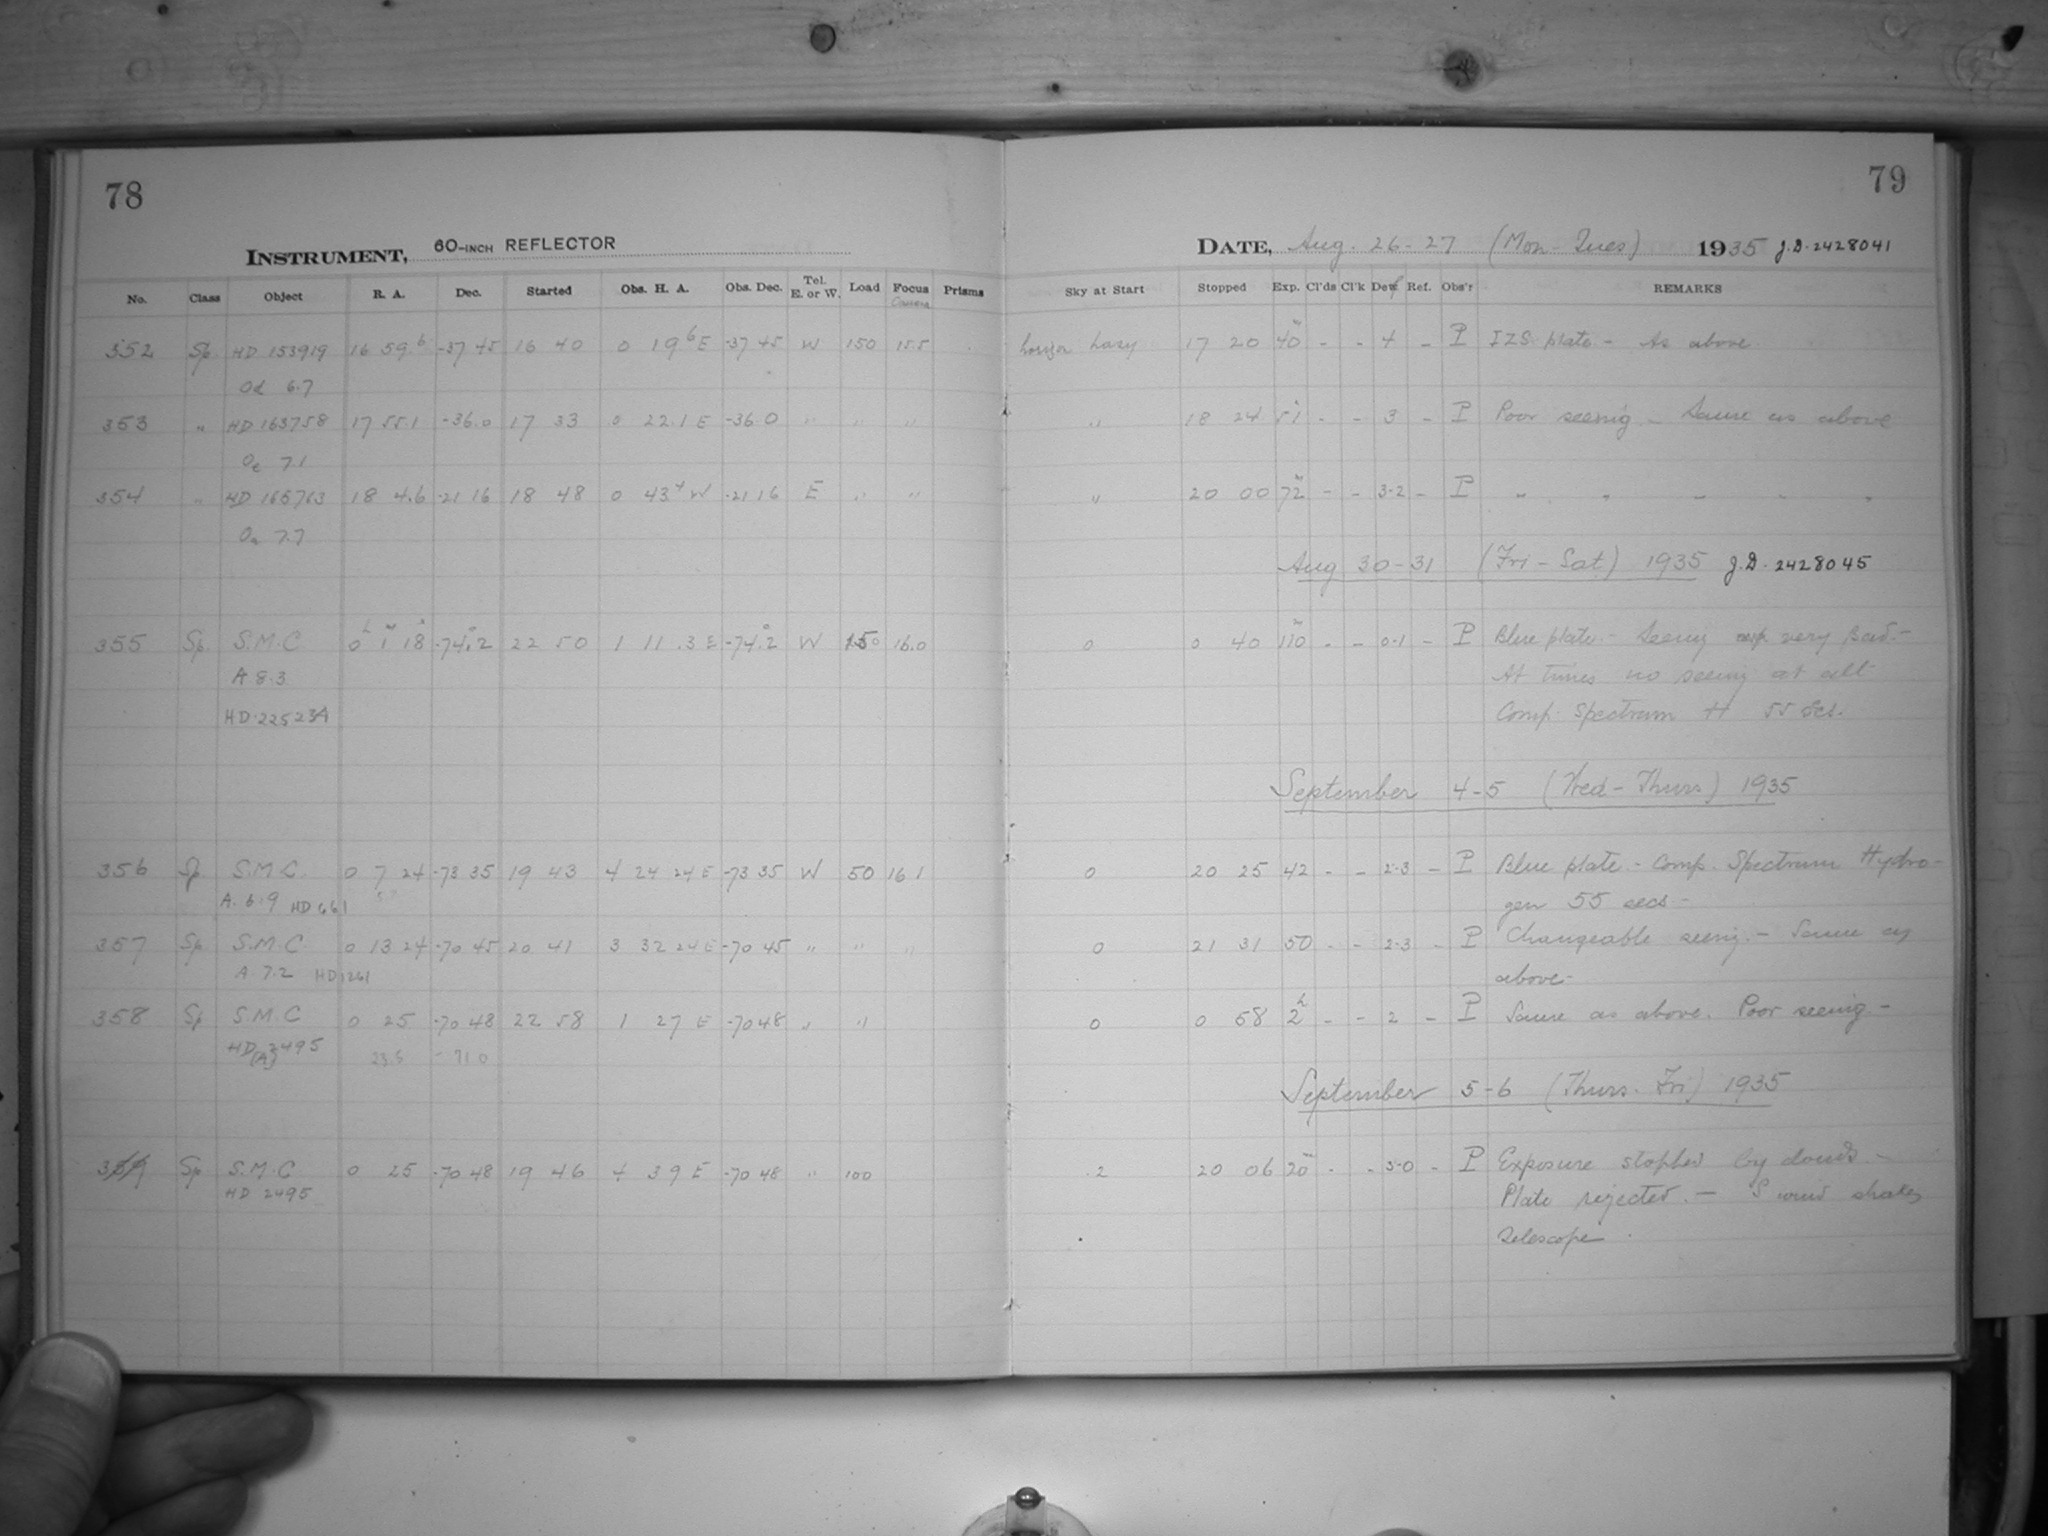 78
INSTRUMENT, 60-INCH REFLECTOR
No. Class Object R. A. Dec. Started Obs. H. A. Obs. Dec. Tel. E. or W. Load Focus Camera Prisms
352 Sp. HD 153919 16 59.6 -37 45 16 40 0 19.6 E -37 45 W 150 15.5
Od 6.7
353 " HD 163758 17 55.1 -36.0 17 33 0 22.1 E -36.0 " " "
Oe 7.1
354 " HD 165763 18 4.6 -21 16 18 48 0 43.4 W -21 16 E " "
Oa 7.7
355 Sp. S.M.C 0h 1m 18s -74°.2 22 50 1 11.3 E -74°.2 W 150 16.0
A 8.3
HD 225234
356 Sp. S.M.C. 0 7 24 -73 35 19 43 4 24 24 E -73 35 W 50 16 1
A. 6.9 HD 661
357 Sp. S.M.C 0 13 24 -70 45 20 41 3 32 24 E -70 45 " " "
A 7.2 HD 1261
358 Sp S.M.C 0 25 -70 48 22 58 1 27 E -70 48 " "
HD 2495 23.5 -71 0
(A)
359 Sp S.M.C 0 25 -70 48 19 46 4 39 E -70 48 " 100
HD 2495
79
DATE, Aug. 26-27 (Mon-Tues) 1935 J.D. 2428041
Sky at Start Stopped Exp. Cl'ds Cl'k Dew Ref. Obs'r REMARKS
horizon hazy 17 20 40m - - 4 - P IZS plate - As above
" 18 24 51 - - 3 - P Poor seeing - Same as above
" 20 00 72m - - 3-2 - P " " " " "
Aug 30-31 (Fri-Sat) 1935 J.D. 2428045
0 0 40 110m - - 0-1 - P Blue plate - Seeing very bad. -
At times no seeing at all
Comp. Spectrum H 55 secs.
September 4-5 (Wed-Thurs) 1935
0 20 25 42 - - 2-3 - P Blue plate - Comp. Spectrum Hydro-
gen 55 secs -
0 21 31 50 - - 2-3 - P Changeable seeing. - Same as
above -
0 0 58 2h - - 2 - P Same as above. Poor seeing -
September 5-6 (Thurs-Fri) 1935
2 20 06 20m - - 3-0 - P Exposure stopped by clouds -
Plate rejected. - S wind shakes
telescope.